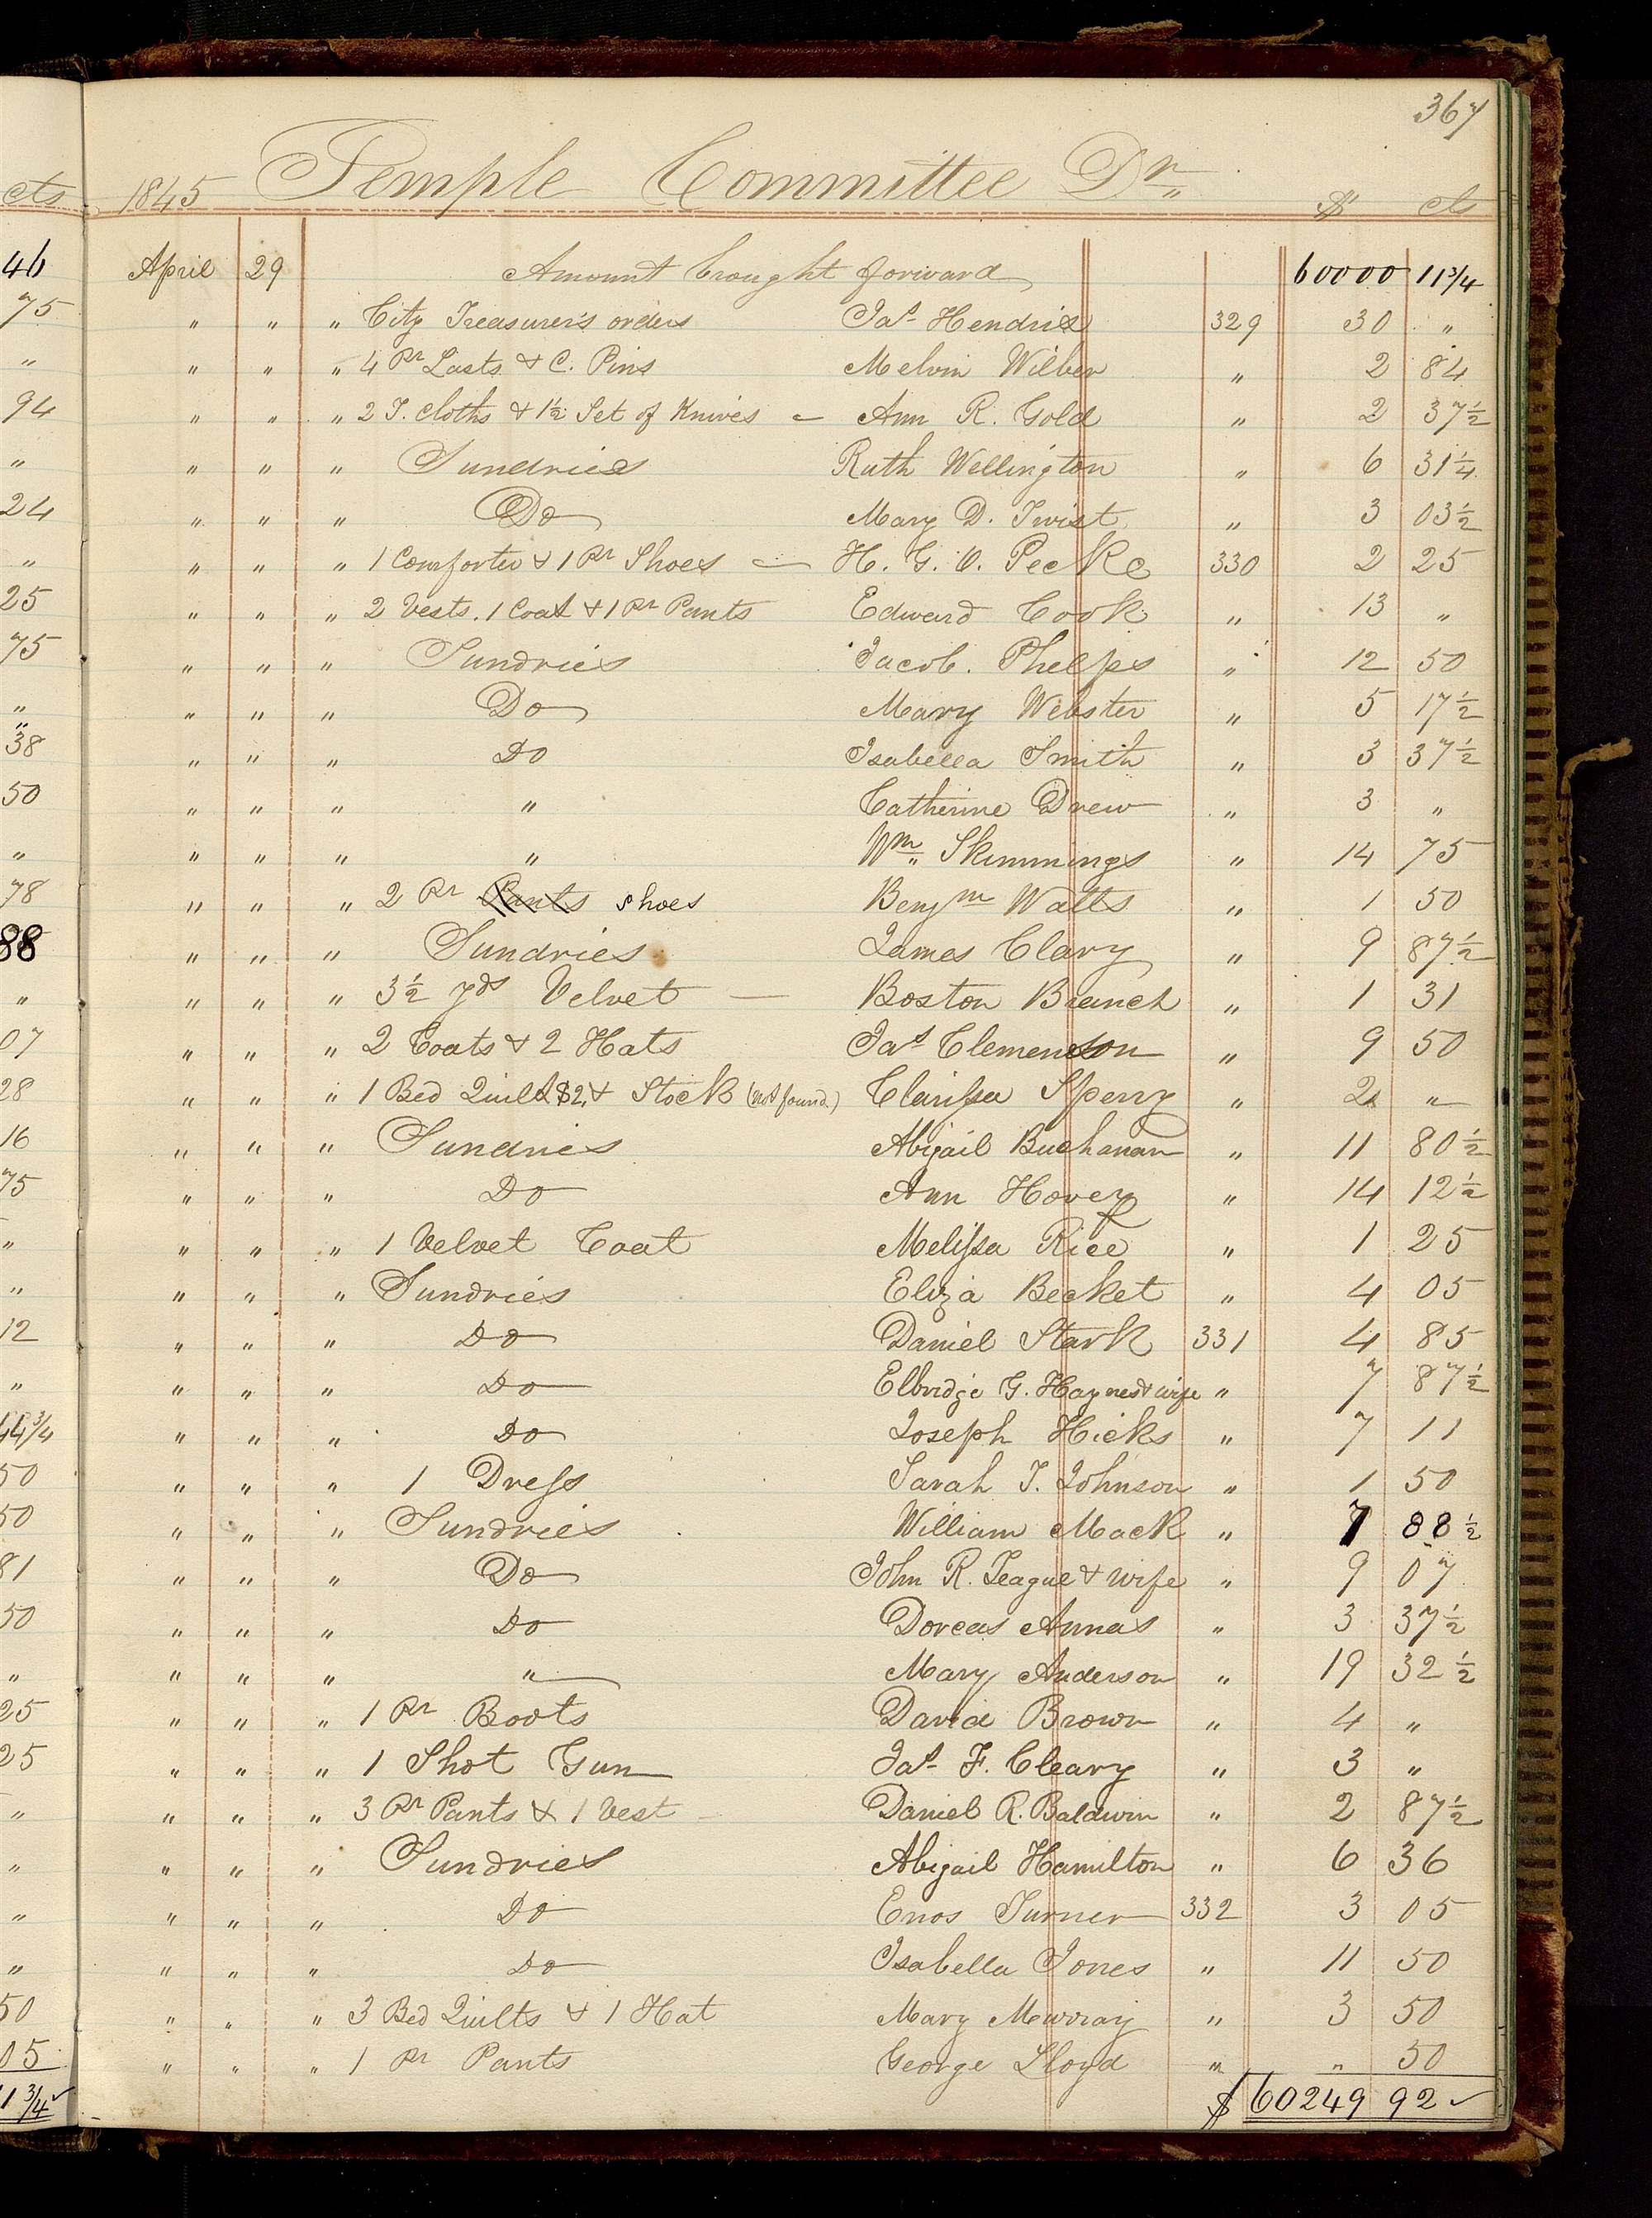 367
1845 Temple Committee Dr. $ cts
April 29 Amount brought forward 60000 11 3/4
" " " City Treasurer's orders Jas Hendrix 329 30 "
" " " 4 Pr Lasts & C. Pins Melvin Wilber " 2 84
" " " 2 T. Cloths & 1 1/2 Set of Knives — Ann R. Gold " 2 37 1/2
" " " Sundries Ruth Wellington " 6 31 1/4
" " " Do Mary D. Twist " 3 03 1/2
" " " 1 Comforter & 1 Pr Shoes — H. G. O. Pecke 330 2 25
" " " 2 Vests. 1 Coat & 1 Pr Pants Edward Cook " 13 "
" " " Sundries Jacob. Phelps " 12 50
" " " Do Mary Webster " 5 17 1/2
" " " Do Isabella Smith " 3 37 1/2
" " " " Catherine Drew " 3 "
" " " " Wm Skimmings " 14 75
" " " 2 Pr Pants shoes Benjm Watts " 1 50
" " " Sundries James Clary " 9 87 1/2
" " " 3 1/2 yds Velvet — Boston Branch " 1 31
" " " 2 Coats & 2 Hats Jas Clemenson " 9 50
" " " 1 Bed Quilt $2, & Stock (not found.) Clarissa Sperry " 2 "
" " " Sundries Abigail Buchanan " 11 80 1/2
" " " Do Ann Hovey " 14 12 1/2
" " " 1 Velvet Coat Melissa Rice " 1 25
" " " Sundries Eliza Becket " 4 05
" " " Do Daniel Stark 331 4 85
" " " Do Elbridge G. Haynes & wife " 7 87 1/2
" " " Do Joseph Hicks " 7 11
" " " 1 Dress Sarah T. Johnson " 1 50
" " " Sundries William Mack " 7 88 1/2
" " " Do John R. Teague & wife " 9 07
" " " Do Dorcas Annas " 3 37 1/2
" " " " Mary Anderson " 19 32 1/2
" " " 1 Pr Boots David Brown " 4 "
" " " 1 Shot Gun Jas F. Cleary " 3 "
" " " 3 Pr Pants & 1 Vest Daniel R. Baldwin " 2 87 1/2
" " " Sundries Abigail Hamilton " 6 36
" " " Do Enos Turner 332 3 05
" " " Do Isabella Jones " 11 50
" " " 3 Bed Quilts & 1 Hat Mary Murray " 3 50
" " " 1 Pr Pants George Lloyd " " 50
$ 60249 92 ✓
cts
46
75
"
94
"
24
"
25
75
"
"
38
50
"
78
88
"
07
28
16
75
"
"
12
"
44 3/4
50
50
81
50
"
25
25
"
"
"
"
50
05
11 3/4 ✓